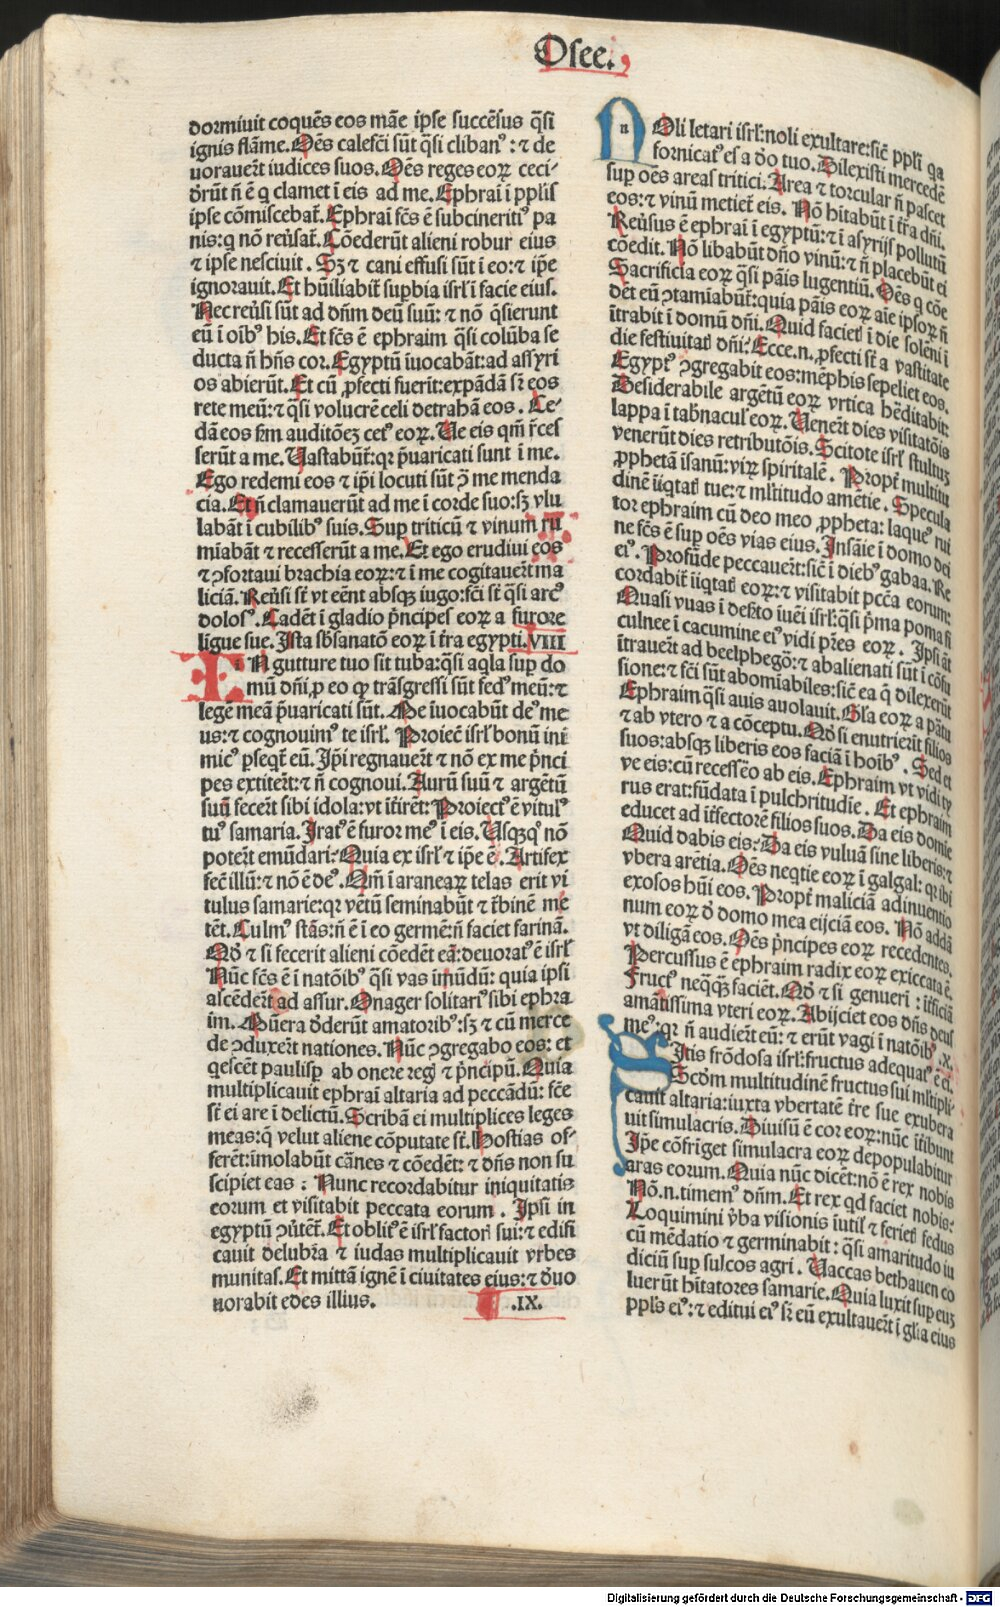 Osee.
dormiuit coquēs eos māe ipse succēsus q̄si
ignis flāme. Oēs calefcī sūt q̄si clibanꝰ: ⁊ de
uorauert̄ iudices suos. Oēs reges eoꝝ ceci-
dr̄ūt n̄ ē q̄ clamet ī eis ad me. Ephraī ī ppl̄is
ipse cōmiscebat̄. Ephraī fc̄s ē subcineritiꝰ pa
nis: q̄ nō reu̇sat̄. Cōederūt alieni robur eius
⁊ ipse nesciuit. Sꝫ ⁊ cani effusi sūt ī eo: ⁊ ip̄e
ignorauit. Et hūiliabit̄ suꝑbia isrl̄ ī facie eius.
Nec reu̇si sūt ad dn̄m deū suū: ⁊ nō q̄sierunt
eū ī oībꝰ his. Et fc̄s ē ephraim q̄si colūba se
ducta n̄ hn̄s cor. Egyptū īuocabāt: ad assyri
os abierūt. Et cū ꝓfecti fuerīt: expādā sꝛ̄ eos
rete meū: ⁊ q̄si volucrē celi detrahā eos. Ce-
dā eos scd̄m auditōeꝫ cetꝰ eoꝝ. Ue eis qm̄ r̄ces
serūt a me. Uastabūt̄: qꝛ p̄uaricati sunt ī me.
Ego redemi eos ⁊ ip̄i locuti sūt ꝯ̄ me menda
cia. Et n̄ clamauerūt ad me ī corde suo: sꝫ vlu
labāt ī cubilibꝰ suis. Suꝑ triticū ⁊ vinum ru
miabāt ⁊ recesserūt a me. Et ego erudiui eos
⁊ ꝯfortaui brachia eoꝝ: ⁊ ī me cogitauert̄ ma
liciā. Reu̇si st̄ vt eēnt absqꝫ iugo: fcī st̄ q̄si arcꝰ
dolosꝰ. Cadēt ī gladio p̄ncipes eoꝝ a furore
ligue sue. Ista sb̄sanatō eoꝝ ī tr̄a egypti. VIII
IN gutture tuo sit tuba: q̄si aq̄la suꝑ do
mū dn̄i, ꝓ eo ꝙ trāsgressi sūt fedꝰ meū: ⁊
legē meā p̄uaricati sūt. Me īuocabūt deꝰ me
us: ⁊ cognouimꝰ te isrl̄. Proiec̄ isrl̄ bonū ini
micꝰ ꝑseqt̄ eū. Ip̄i regnauert̄ ⁊ nō ex me p̄nci
pes extitert̄: ⁊ n̄ cognoui. Aurū suū ⁊ argētū
suū fecert̄ sibi idola: vt īt̄iret̄: Proiectꝰ ē vitulꝰ
tuꝰ samaria. Iratꝰ ē furor meꝰ ī eis. Usqꝫqꝰ nō
potert̄ emūdari? Quia ex isrl̄ ⁊ ip̄e ē. Artifex
fec̄ illū: ⁊ nō ē deꝰ. Qm̄ ī araneaꝝ telas erit vi
tulus samarie: qꝛ vētū seminabūt ⁊ tbīnē me
tēt. Culmꝰ stās: n̄ ē ī eo germē: n̄ faciet farinā.
Qd̄ ⁊ si fecerit alieni cōedēt eā: deuoratꝰ ē isrl̄
Nūc fc̄s ē ī natōibꝰ q̄si vas īmūdū: quia ipsi
ascēdert̄ ad assur. Onager solitariꝰ sibi ephra
im. Mūera dederūt amatoribꝰ: sꝫ ⁊ cū merce
de ꝯduxert̄ nationes. Nūc ꝯgregabo eos: et
q̄escēt paulisꝑ ab onere regꝭ ⁊ p̄ncipū. Quia
multiplicauit ephraī altaria ad peccādū: fc̄e
st̄ ei are ī delictū. Scribā ei multiplices leges
meas: q̄ velut aliene cōputate st̄. Hostias of-
ferēt: īmolabūt cānes ⁊ cōedēt: ⁊ dn̄s non su
scipiet eas: Nunc recordabitur iniquitatis
eorum et visitabit peccata eorum. Ipsi in
egyptū ꝯu̇tēt̄. Et oblitꝰ ē isrl̄ factorꝭ sui: ⁊ edifi
cauit delubra ⁊ iudas multiplicauit vrbes
munitas. Et mittā ignē ī ciuitates eius: ⁊ deuo
uorabit edes illius. .IX.
NOli letari isrl̄: noli exultare: sic̄ ppl̄i qꝛ
fornicatꝰ es a do tuo. Dilexisti mercedē
suꝑ oēs areas tritici. Area ⁊ torcular n̄ pascet
eos: ⁊ vinū metiet̄ eis. Nō hītabūt ī tr̄a dn̄i.
Reu̇sus ē ephrai ī egyptū: ⁊ ī asyrijs pollutū
cōedit. Nō libabūt dn̄o vinū: ⁊ n̄ placebūt ei
Sacrificia eoꝝ q̄si pāis lugentiū. Oēs q̄ cōe
dēt eū ꝯtamīabūt̄: quia pāis eoꝝ aīe ipsoꝝ n̄
ītrabit ī domū dn̄i. Quid facietꝭ ī die solēni ī
die festiuitatꝭ dn̄i? Ecce. n. ꝓfecti st̄ a vastitate
Egyptꝰ ꝯgregabit eos: mēphis sepeliet eos.
Desiderabile argētū eoꝝ vrtica hēditabit:
lappa ī tabn̄aculꝭ eoꝝ. Uenert̄ dies visitatōis
venerūt dies retributōis. Scitote isrl̄ stultuꝫ
ꝓphetā īsanū: viꝝ spiritalē. Propt̄ multitu
dinē iīqtatꝭ tue: ⁊ ml̄titudo amētie. Specula
tor ephraim cū deo meo ꝓpheta: laqueꝰ rui
ne fc̄s ē suꝑ oēs vias eius. Insāie ī domo dei
eiꝰ. Profūde peccauert̄: sic̄ ī diebꝰ gabaa. Re
cordabit̄ iīqtatꝭ eoꝝ: ⁊ visitabit pctā eorum:
Quasi vuas ī desto īuēi isrl̄: q̄si p̄ma poma fi
culnee ī cacumine eiꝰ vidi pr̄es eoꝝ. Ipsi āt
ītrauert̄ ad beelphegō: ⁊ abalienati sūt ī cōfu
sione: ⁊ fcī sūt abomīabiles: sic̄ ea q̄ dilexerūt
Ephraim q̄si auis auolauit. Gl̄a eoꝝ a pātu
⁊ ab vtero ⁊ a cōceptu. Qd̄ si enutrierīt filios
suos: absqꝫ liberis eos faciā ī hoībꝰ. Sed et
ve eis: cū recessēo ab eis. Ephraim vt vidi ty
rus erat: fūdata ī pulchritudīe. Et ephraim
educet ad īt̄fectorē filios suos. Da eis domīe
Quid dabis eis? Da eis vuluā sine liberis: ⁊
vbera aretia. Oēs neqtie eoꝝ ī galgal: qꝛ ibi
exosos hūi eos. Propt̄ maliciā adinuentio
num eoꝝ de domo mea eijciā eos. Nō addā
vt diligā eos. Oēs p̄ncipes eoꝝ recedentes.
Percussus ē ephraim radix eoꝝ exiccata ē.
Fructꝰ neq̄qꝫ faciēt. Qd̄ ⁊ si genueri: īt̄ficiā
amātissima vteri eoꝝ. Abijciet eos dn̄s deus
meꝰ: qꝛ n̄ audiert̄ eū: ⁊ erūt vagi ī natōibꝰ. .X.
Uitis frōdosa isrl̄: fructus adequatꝰ ē ei.
Scdm̄ multitudinē fructus sui ml̄tipli
cauit altaria: iuxta vbertatē tr̄e sue exubera
uit simulacris. Diuisū ē cor eoꝝ: nūc īt̄ibunt
Ip̄e cōfriget simulacra eoꝝ depopulabitur
aras eorum. Quia nūc dicēt: nō ē rex nobis
Nō. n. timemꝰ dn̄m. Et rex qd faciet nobis?
Loquimini v̄ba visionis īutilꝭ ⁊ ferietꝭ fedus
cū mēdatio ⁊ germinabit: q̄si amaritudo iu
diciū suꝑ sulcos agri. Uaccas bethauen co
luerūt hītatores samarie. Quia luxit suꝑ euꝫ
ppl̄s eiꝰ: ⁊ editui eiꝰ sꝛ̄ eū exultauert̄ ī gl̄ia eius
Digitalisierung gefördert durch die Deutsche Forschungsgemeinschaft - DFG